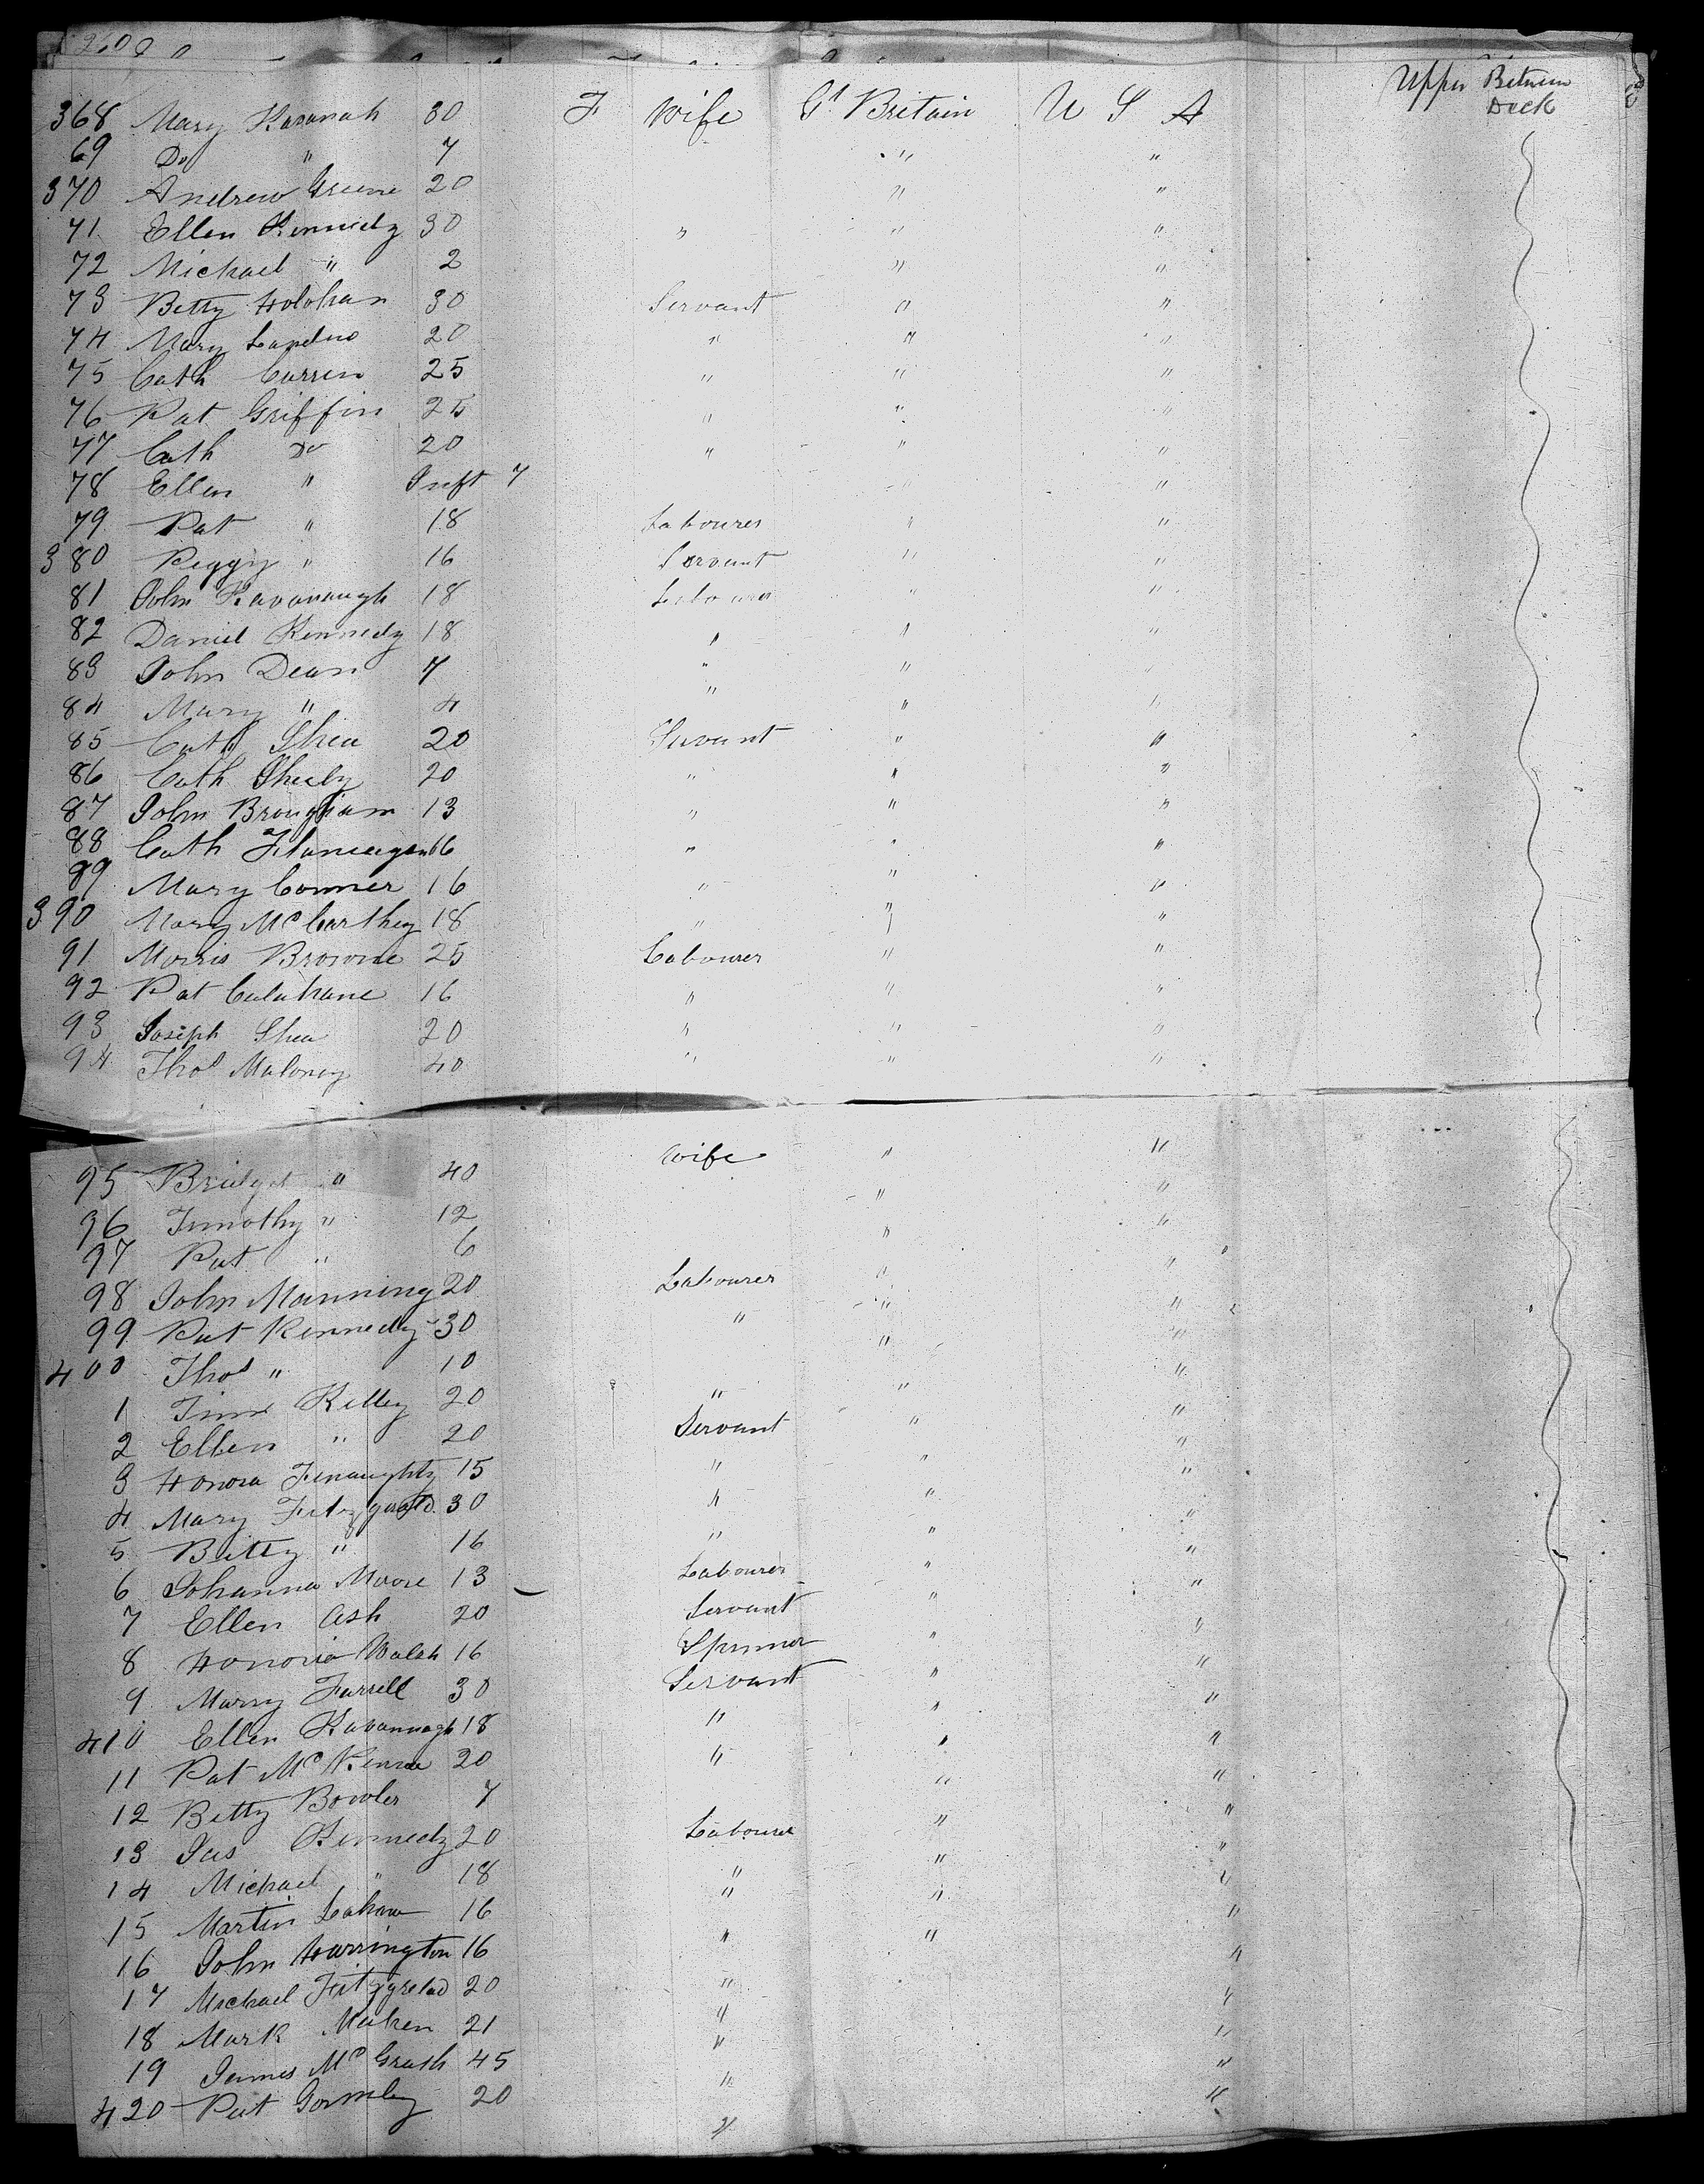 260
Upper Between
Deck
368 Mary Kavanah 30 F Wife Gt Britain U S A
69 Do " 7 " "
370 Andrew Greene 20 " "
71 Ellen Kennedy 30 " " "
72 Michael " 2 " "
73 Betty Holohan 30 Servant " "
74 Mary 20 " " "
75 Cath Curren 25 " " "
76 Pat Griffin 25 " " "
77 Cath Do 20 " " "
78 Ellen " Inft 7 " "
79 Pat " 18 Labourer " "
380 Peggy " 16 Servant " "
81 John Kavanaugh 18 Labourer " "
82 Daniel Kennedy 18 " " "
83 John Dean 7 " " "
84 Mary " 4 " " "
85 Cath Shea 20 Servant " "
86 Cath Sheehy 20 " " "
87 John Brougham 13 " " "
88 Cath Flaneagan 16 " " "
89 Mary Conner 16 " " "
390 Mary McCarthey 18 " " "
91 Morris Browne 25 Labourer " "
92 Pat Culahane 16 " " "
93 Joseph Shea 20 " " "
94 Thos Maloney 40 " " "
95 Bridget " 40 Wife " "
96 Timothy " 12 " "
97 Pat " 6 " "
98 John Manning 20 Labourer " "
99 Pat Kennedy 30 " " "
400 Thos " 10 " "
1 Tim Kelley 20 " " "
2 Ellen " 20 Servant " "
3 Honora Finaughty 15 " " "
4 Mary Fitzgerald 30 " " "
5 Bitty " 16 " " "
6 Johanna Moore 13 Labourer " "
7 Ellen Ash 20 Servant " "
8 Honoria Walsh 16 Spinner " "
9 Marry Farrell 30 Servant " "
410 Ellen Kavannagh 18 " " "
11 Pat McKenna 20 " " "
12 Betty Bowler 7 " "
13 Jas Kennedy 20 Labourer " "
14 Michael " 18 " " "
15 Martin 16 " " "
16 John Harrington 16 " " "
17 Michael Fitzgreld 20 " "
18 Mark Mahen 21 " "
19 James McGrath 45 " "
420 Pat Gormley 20 " "